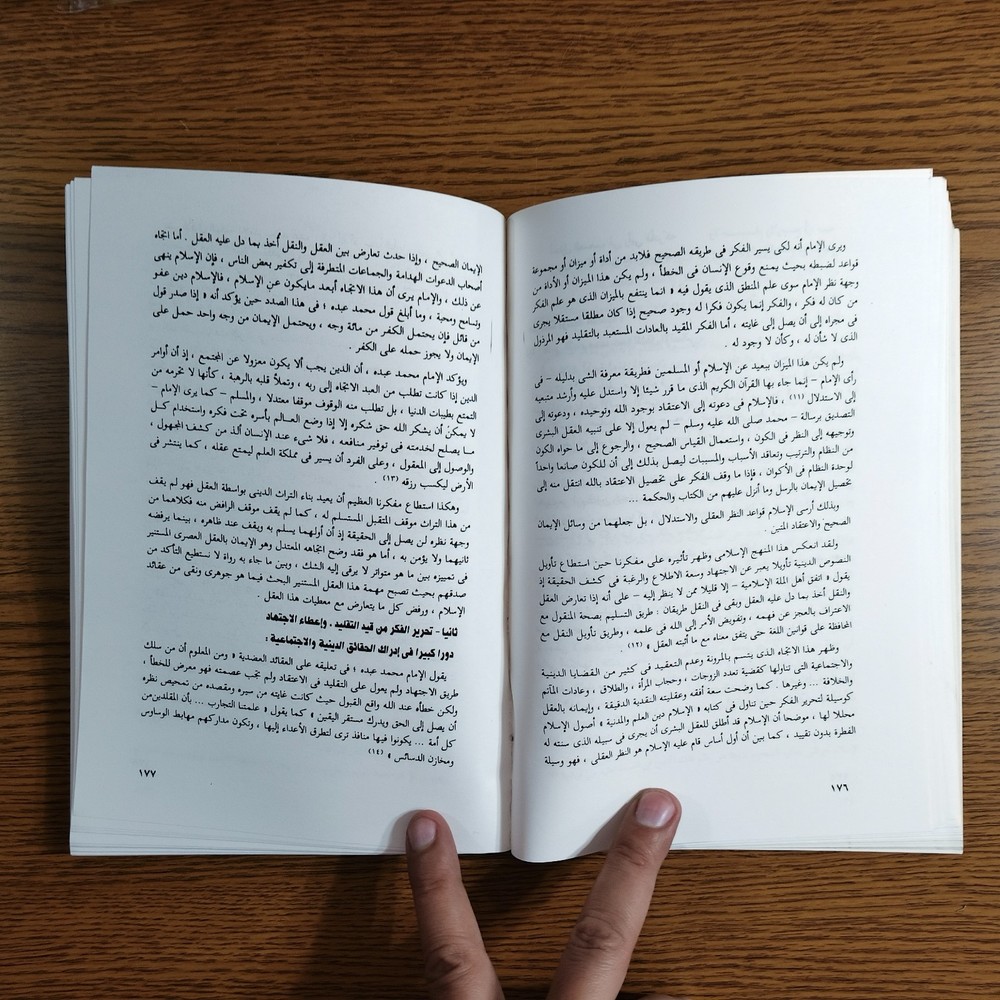 ويرى الإمام أنه لكى يسير الفكر فى طريقه الصحيح فلابد من أداة أو ميزان أو مجموعة
قواعد لضبطه بحيث يمنع وقوع الإنسان فى الخطأ ، ولم يكن هذا الميزان أو الأداة من
وجهة نظر الإمام سوى علم المنطق الذى يقول فيه « انما ينتفع بالميزان الذى هو علم الفكر
من كان له فكر ، والفكر إنما يكون فكرا له وجود صحيح إذا كان مطلقا مستقلا يجرى
فى مجراه إلى أن يصل إلى غايته ، أما الفكر المقيد بالعادات المستعبد بالتقليد فهو المرذول
الذى لا شأن له ، وكأن لا وجود له .
ولم يكن هذا الميزان ببعيد عن الإسلام أو المسلمين فطريقة معرفة الشئ بدليله – فى
رأى الإمام – إنما جاء بها القرآن الكريم الذى ما قرر شيئا إلا واستدل عليه وأرشد متبعيه
إلى الاستدلال (١١) ، فالإسلام فى دعوته إلى الاعتقاد بوجود الله وتوحيده ، ودعوته إلى
التصديق برسالة – محمد صلى الله عليه وسلم – لم يعول إلا على تنبيه العقل البشرى
وتوجيهه إلى النظر فى الكون ، واستعمال القياس الصحيح ، والرجوع إلى ما حواه الكون
من النظام والترتيب وتعاقد الأسباب والمسببات ليصل بذلك إلى أن للمكون صانعا واحداً
لوحدة النظام فى الأكوان ، فإذا ما وقف الفكر على تحصيل الاعتقاد بالله انتقل منه إلى
تحصيل الإيمان بالرسل وما أنزل عليهم من الكتاب والحكمة ...
وبذلك أرسى الإسلام قواعد النظر العقلى والاستدلال ، بل جعلهما من وسائل الإيمان
الصحيح والاعتقاد المتين .
ولقد انعكس هذا المنهج الإسلامى وظهر تأثيره على مفكرنا حين استطاع تأويل
النصوص الدينية تأويلا يعبر عن الاجتهاد وسعة الاطلاع والرغبة فى كشف الحقيقة إذ
يقول « اتفق أهل الملة الإسلامية – إلا قليلا ممن لا ينظر إليه – على أنه إذا تعارض العقل
والنقل أخذ بما دل عليه العقل وبقى فى النقل طريقان : طريق التسليم بصحة المنقول مع
الاعتراف بالعجز عن فهمه ، وتفويض الأمر إلى الله فى علمه ، وطريق تأويل النقل مع
المحافظة على قوانين اللغة حتى يتفق معناه مع ما أثبته العقل » (١٢) .
وظهر هذا الاتجاه الذى يتسم بالمرونة وعدم التعقيد فى كثير من القضايا الدينية
والاجتماعية التى تناولها كقضية تعدد الزوجات ، وحجاب المرأة ، والطلاق ، وعادات المآتم
والخلافة ... وغيرها . كما وضحت سعة أفقه وعقليته النقدية الدقيقة ، وإيمانه بالعقل
كوسيلة لتحرير الفكر حين تناول فى كتابه « الإسلام دين العلم والمدنية » أصول الإسلام
محللا لها ، موضحا أن الإسلام قد أطلق للعقل البشرى أن يجرى فى سبيله الذى سنته له
الفطرة بدون تقييد ، كما بين أن أول أساس قام عليه الإسلام هو النظر العقلى ، فهو وسيلة
١٧٦
الإيمان الصحيح ، وإذا حدث تعارض بين العقل والنقل أُخذ بما دل عليه العقل . أما اتجاه
أصحاب الدعوات الهدامة والجماعات المتطرفة إلى تكفير بعض الناس ، فإن الإسلام ينهى
عن ذلك ، والإمام يرى أن هذا الاتجاه أبعد مايكون عن الإسلام ، فالإسلام دين عفو
وتسامح ومحبة ، وما أبلغ قول محمد عبده ؛ فى هذا الصدد حين يؤكد أنه « إذا صدر قول
من قائل فإن يحتمل الكفر من مائة وجه ، ويحتمل الإيمان من وجه واحد حمل على
الإيمان ولا يجوز حمله على الكفر .
ويؤكد الإمام محمد عبده ، أن الدين يجب ألا يكون معزولا عن المجتمع ، إذ أن أوامر
الدين إذا كانت تطلب من العبد الاتجاه إلى ربه ، وتملأ قلبه بالرهبة ، كأنها لا تحرمه من
التمتع بطيبات الدنيا ، بل تطلب منه الوقوف موقفا معتدلا ، والمسلم – كما يرى الإمام –
لا يمكن أن يشكر الله حق شكره إلا إذا وضع العالم بأسره تحت فكره واستخدام كل
ما يصلح لخدمته فى توفير منافعه ، فلا شىء عند الإنسان ألذ من كشف المجهول ،
والوصول إلى المعقول ، وعلى الفرد أن يسير فى مملكة العلم ليمتع عقله ، كما ينتشر فى
الأرض ليكسب رزقه (١٣) .
وهكذا استطاع مفكرنا العظيم أن يعيد بناء التراث الدينى بواسطة العقل فهو لم يقف
من هذا التراث موقف المتقبل المستسلم له ، كما لم يقف موقف الرافض منه فكلاهما من
وجهة نظره لن يصل إلى الحقيقة إذ أن أولهما يسلم به ويقف عند ظاهره ، بينما يرفضه
ثانيهما ولا يؤمن به ، أما هو فقد وضح اتجاهه المعتدل وهو الإيمان بالعقل العصرى المستنير
فى تمييزه بين ما هو متواتر لا يرقى إليه الشك ، وبين ما جاء به رواة لا نستطيع التأكد من
صدقهم بحيث تصبح مهمة هذا العقل المستنير البحث فيما هو جوهرى ونقى من عقائد
الإسلام ، ورفض كل ما يتعارض مع معطيات هذا العقل .
ثانيا – تحرير الفكر من قيد التقليد ، وإعطاء الاجتهاد
دورا كبيرا فى إدراك الحقائق الدينية والاجتماعية :
يقول الإمام محمد عبده ؛ فى تعليقه على العقائد العضدية « ومن المعلوم أن من سلك
طريق الاجتهاد ولم يعول على التقليد فى الاعتقاد ولم تجب عصمته فهو معرض للخطأ ،
ولكن خطأه عند الله واقع القبول حيث كانت غايته من سيره ومقصده من تمحيص نظره
أن يصل إلى الحق ويدرك مستقر اليقين » كما يقول « علمتنا التجارب ... بأن المقلدين من
كل أمة ... يكونوا فيها منافذ ترى لتطرق الأعداء إليها ، وتكون مداركهم مهابط الوساوس
ومخازن الدسائس » (١٤)
١٧٧